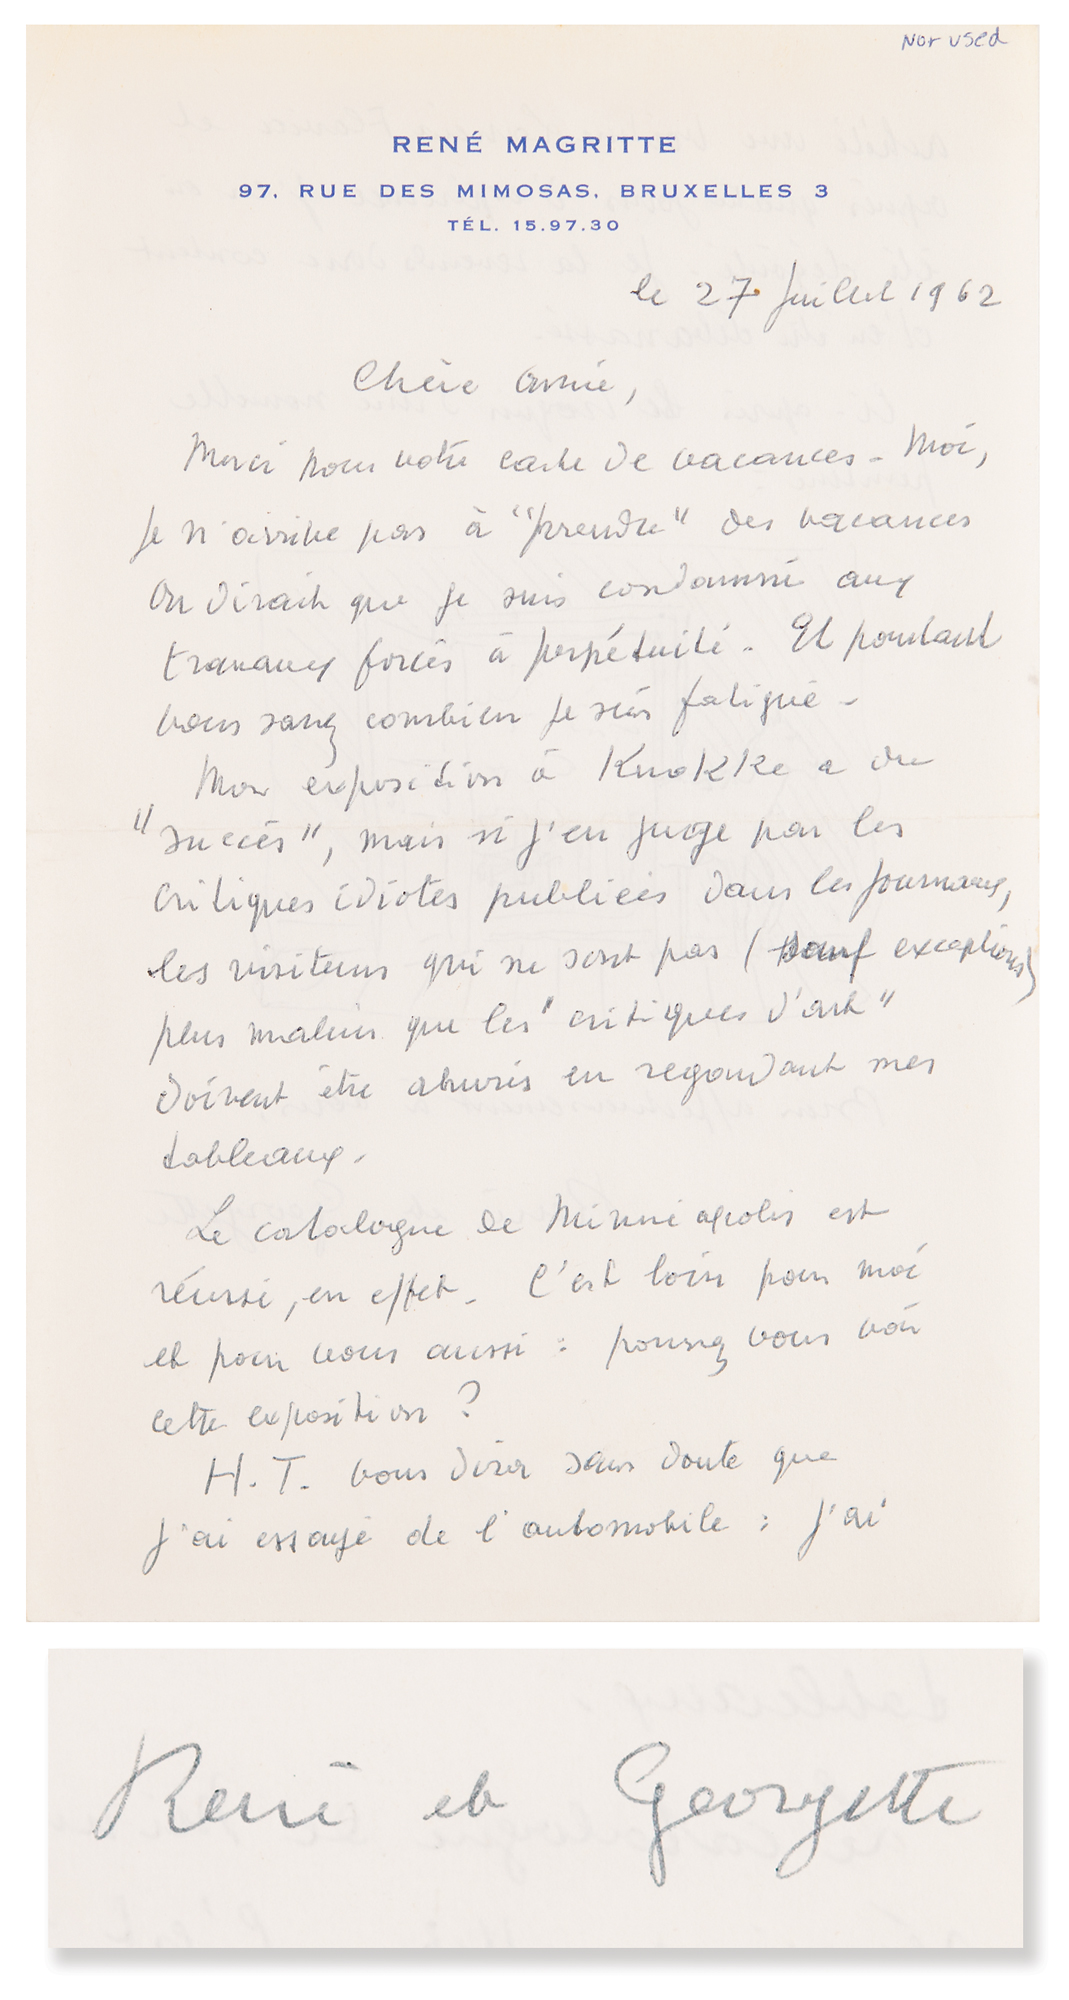 Not used
RENÉ MAGRITTE
97, RUE DES MIMOSAS, BRUXELLES 3
TÉL. 15.97.30
le 27 juillet 1962
Chère amie,
Merci pour votre carte de vacances - Moi,
je n'arrive pas à "prendre" des vacances
On dirait que je suis condamné aux
travaux forcés à perpétuité. Et pourtant
vous savez combien je suis fatigué -
Mon exposition à Knokke a du
"succès", mais si j'en juge par les
critiques idiotes publiées dans les journaux,
les visiteurs qui ne sont pas (sauf exceptions)
plus malins que les "critiques d'art"
doivent être ahuris en regardant mes
tableaux.
Le catalogue de Minneapolis est
réussi, en effet. C'est loin pour moi
et pour vous aussi : pourrez vous voir
cette exposition ?
H.T. vous dira sans doute que
j'ai essayé de l'automobile : j'ai
René et Georgette